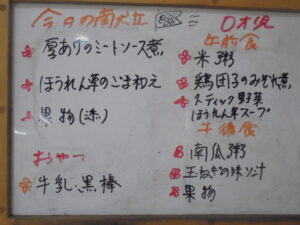 今日の献立
厚あげのミートソース煮
ほうれん草のごま和え
果物(柿)
おやつ
牛乳・黒棒
0才児
午前食
米粥
鶏団子のみぞれ煮
スティック野菜
ほうれん草スープ
午後食
南瓜粥
玉ねぎの味ソ汁
果物